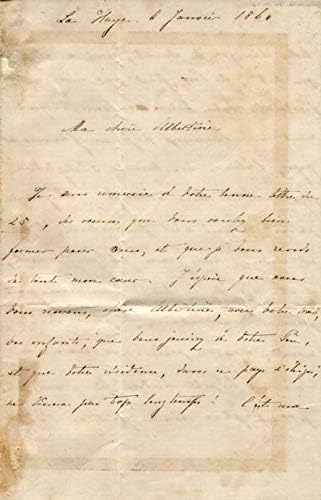 La Haye 6 Janvier 1860
Ma chère Albertine
Je vous remercie de votre bonne lettre du
25, des voeux que vous voulez bien
former pour nous, et que je vous rends
de tout mon coeur. J'espère que nous
vous chère Albertine, avec votre
vos enfants, que vous de votre
et que votre résidence, dans ce pays
ne durera pas trop longtemps! C'est